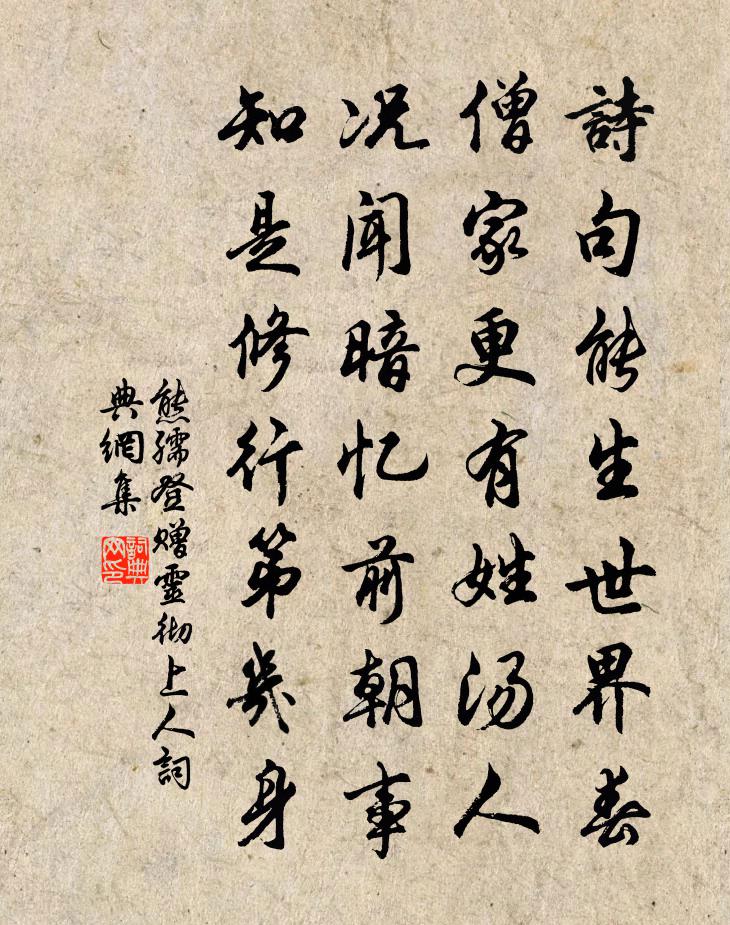 詩句能生世界春
僧家更有姓汤人
况闻暗忆前朝事
知是修行第幾身
熊孺登赠靈彻上人詞
典網集
詞典
网印